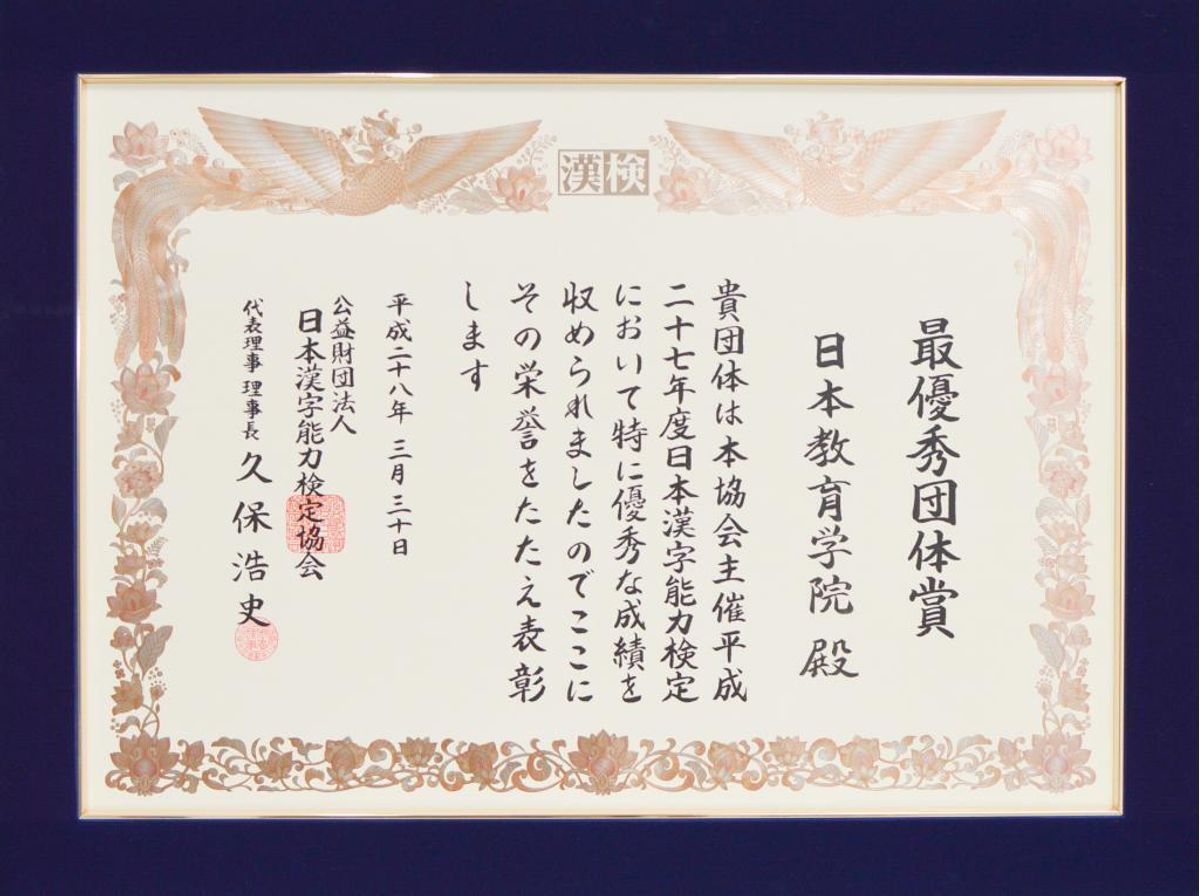 漢検
最優秀団体賞
日本教育学院 殿
貴団体は本協会主催平成
二十七年度日本漢字能力検定
において特に優秀な成績を
収められましたのでここに
その栄誉をたたえ表彰
します
平成二十八年 三月三十日
公益財団法人
日本漢字能力検定協会
代表理事 理事長 久保浩史